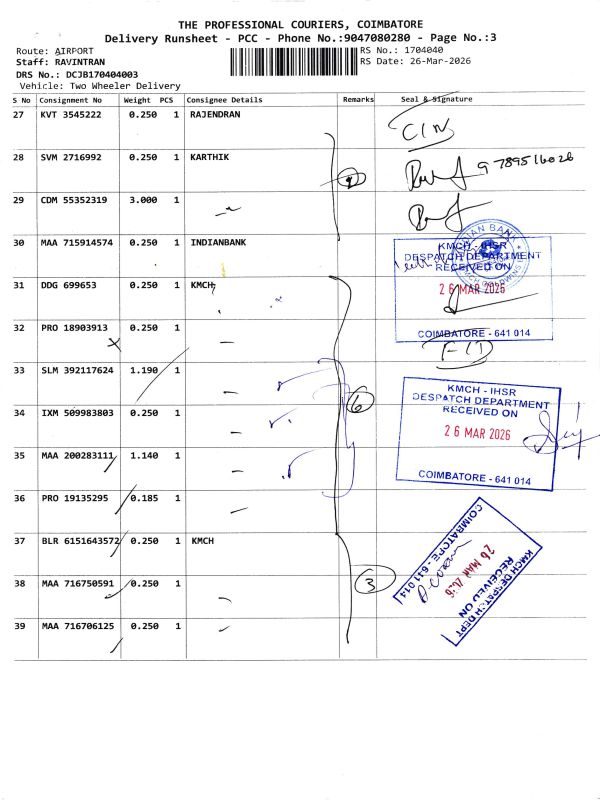 THE PROFESSIONAL COURIERS, COIMBATORE
Delivery Runsheet - PCC - Phone No.:9047080280 - Page No.:3
Route: AIRPORT
RS No.: 1704040
Staff: RAVINTRAN
RS Date: 26-Mar-2026
DRS No.: DCJB170404003
Vehicle: Two Wheeler Delivery
S No Consignment No Weight PCS Consignee Details Remarks Seal & Signature
27 KVT 3545222 0.250 1 RAJENDRAN
28 SVM 2716992 0.250 1 KARTHIK
9789516026
29 CDM 55352319 3.000 1
30 MAA 715914574 0.250 1 INDIANBANK
INDIAN BANK
KMCH - IHSR
DESPATCH DEPARTMENT
RECEIVED ON
31 DDG 699653 0.250 1 KMCH
26 MAR 2026
32 PRO 18903913 0.250 1
COIMBATORE - 641 014
33 SLM 392117624 1.190 1
KMCH - IHSR
DESPATCH DEPARTMENT
RECEIVED ON
34 IXM 509983803 0.250 1
6
26 MAR 2026
35 MAA 200283111 1.140 1
COIMBATORE - 641 014
36 PRO 19135295 0.185 1
37 BLR 6151643572 0.250 1 KMCH
KMCH DESPATCH DEPT
RECEIVED ON
26 MAR 2026
COIMBATORE - 641 014
38 MAA 716750591 0.250 1
3
39 MAA 716706125 0.250 1